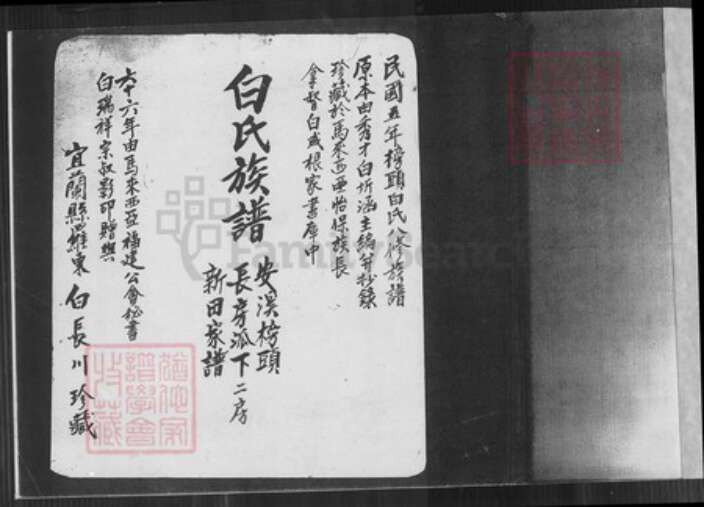 民國五年榜頭白氏八修族譜
原本由秀才白圻涵主編并抄錄
珍藏於馬來西亞怡保族長
拿督白成根家書庫中
白氏族譜
安溪榜頭
長房派下二房
新田家譜
六十六年由馬來西亞福建公會秘書
白瑞祥宗叔影印贈與
宜蘭縣羅東 白長川珍藏
譜學會
FamilySearch